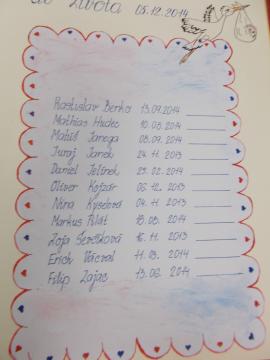 do života 05.12.2014
Rastislav Berko 13.09.2014
Mathias Hudec 10.08.2014
Matúš Janega 08.09.2014
Juraj Janek 24.11.2013
Daniel Jelínek 23.02.2014
Oliver Kojzár 06.12.2013
Nina Kyselová 04.11.2013
Markus Pilát 18.03.2014
Zoja Serečková 16.11.2013
Erich Vácval 11.03.2014
Filip Zajac 13.06.2014